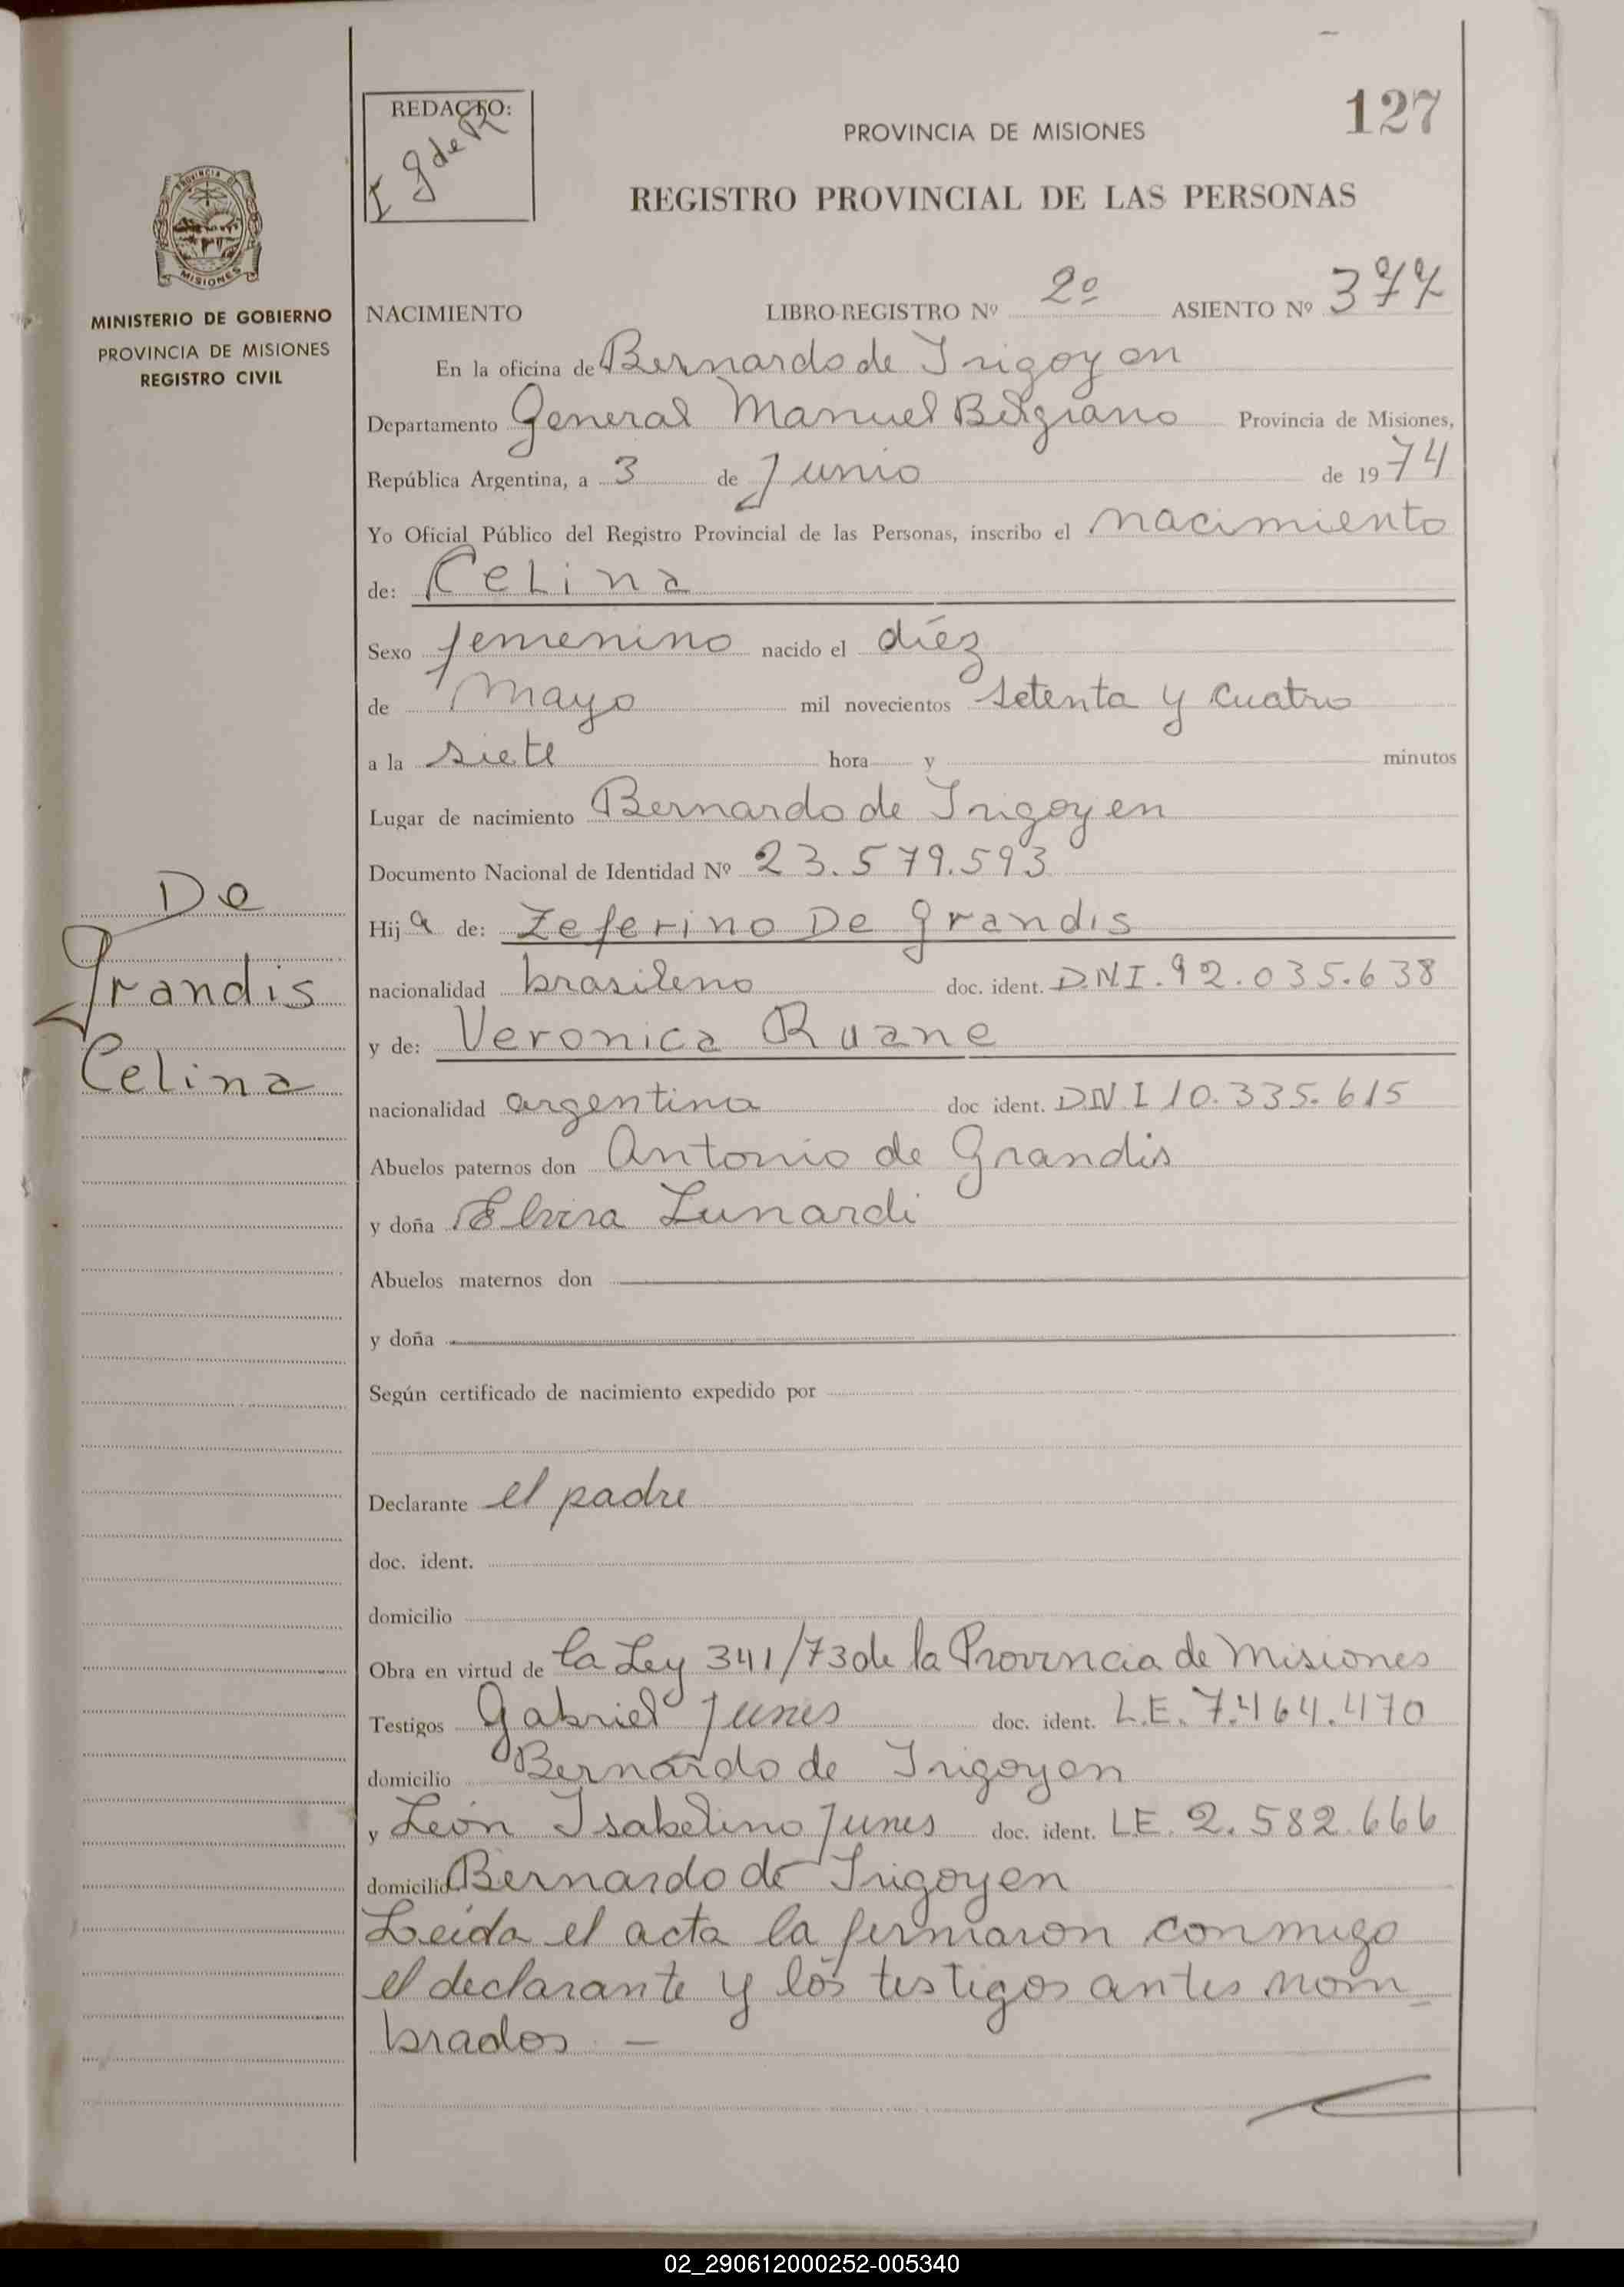 127
REDACTO:
I G de R
PROVINCIA DE MISIONES
REGISTRO PROVINCIAL DE LAS PERSONAS
PROVINCIA DE MISIONES
MINISTERIO DE GOBIERNO
PROVINCIA DE MISIONES
REGISTRO CIVIL
De
Grandis
Celina
NACIMIENTO LIBRO-REGISTRO Nº 2º ASIENTO Nº 377
En la oficina de Bernardo de Irigoyen
Departamento General Manuel Belgrano Provincia de Misiones,
República Argentina, a 3 de Junio de 1974
Yo Oficial Público del Registro Provincial de las Personas, inscribo el nacimiento
de: Celina
Sexo femenino nacido el diéz
de Mayo mil novecientos setenta y cuatro
a la siete hora y minutos
Lugar de nacimiento Bernardo de Irigoyen
Documento Nacional de Identidad Nº 23.579.593
Hija de: Zeferino De Grandis
nacionalidad brasileno doc. ident. D.N.I. 92.035.638
y de: Veronica Ruane
nacionalidad argentina doc ident. D.N.I 10.335.615
Abuelos paternos don Antonio de Grandis
y doña Elvira Lunardi
Abuelos maternos don
y doña
Según certificado de nacimiento expedido por
Declarante el padre
doc. ident.
domicilio
Obra en virtud de la Ley 341/73 de la Provincia de Misiones
Testigos Gabriel Junes doc. ident. L.E. 7.464.470
domicilio Bernardo de Irigoyen
y León Isabelino Junes doc. ident. L.E. 2.582.666
domicilio Bernardo de Irigoyen
Leida el acta la firmaron conmigo
el declarante y los testigos antes nom_
brados —
02_290612000252-005340